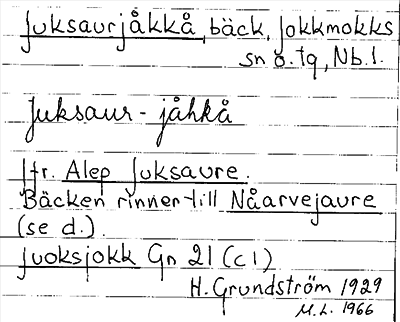 Juksaurjåkkå, bäck, Jokkmokks
sn o. tg, Nb. l.
Juksaur-jåhkå
Jfr. Alep Juksaure.
Bäcken rinner till Nåarvejaure
(se d.).
Juoksjokk Gn 21 (c 1)
H. Grundström 1929
M.L. 1966